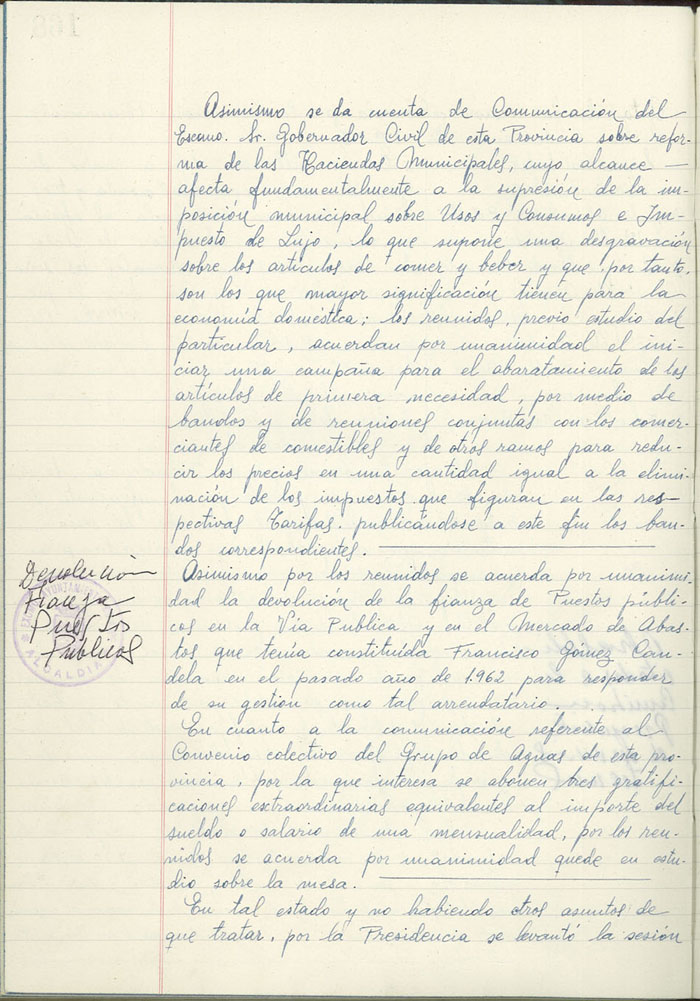 Asimismo se da cuenta de Comunicación del
Excmo. Sr. Gobernador Civil de esta Provincia sobre refor-
ma de las Haciendas Municipales, cuyo alcance —
afecta fundamentalmente a la supresión de la im-
posición municipal sobre Usos y Consumos e Im-
puesto de Lujo, lo que supone una desgravación
sobre los artículos de comer y beber y que por tanto,
son los que mayor significación tienen para la
economía doméstica; los reunidos, previo estudio del
particular, acuerdan por unanimidad el ini-
ciar una campaña para el abaratamiento de los
artículos de primera necesidad, por medio de
bandos y de reuniones conjuntas con los comer-
ciantes de comestibles y de otros ramos para redu-
cir los precios en una cantidad igual a la elimi-
nación de los impuestos que figuran en las res-
pectivas Tarifas. publicándose a este fin los ban-
dos correspondientes.
Devolución
Fianza
Puestos
Públicos
ALCALDIA
Asimismo por los reunidos se acuerda por unanimi-
dad la devolución de la fianza de Puestos públi-
cos en la Vía Publica y en el Mercado de Abas-
tos que tenía constituída Francisco Gómez Can-
dela en el pasado año de 1.962 para responder
de su gestión como tal arrendatario.
En cuanto a la comunicación referente al
Convenio colectivo del Grupo de Aguas de esta pro-
vincia, por la que interesa se abonen tres gratifi-
caciones extraordinarias equivalentes al importe del
sueldo o salario de una mensualidad, por los reu-
nidos se acuerda por unanimidad quede en estu-
dio sobre la mesa.
En tal estado y no habiendo otros asuntos de
que tratar, por la Presidencia se levantó la sesión